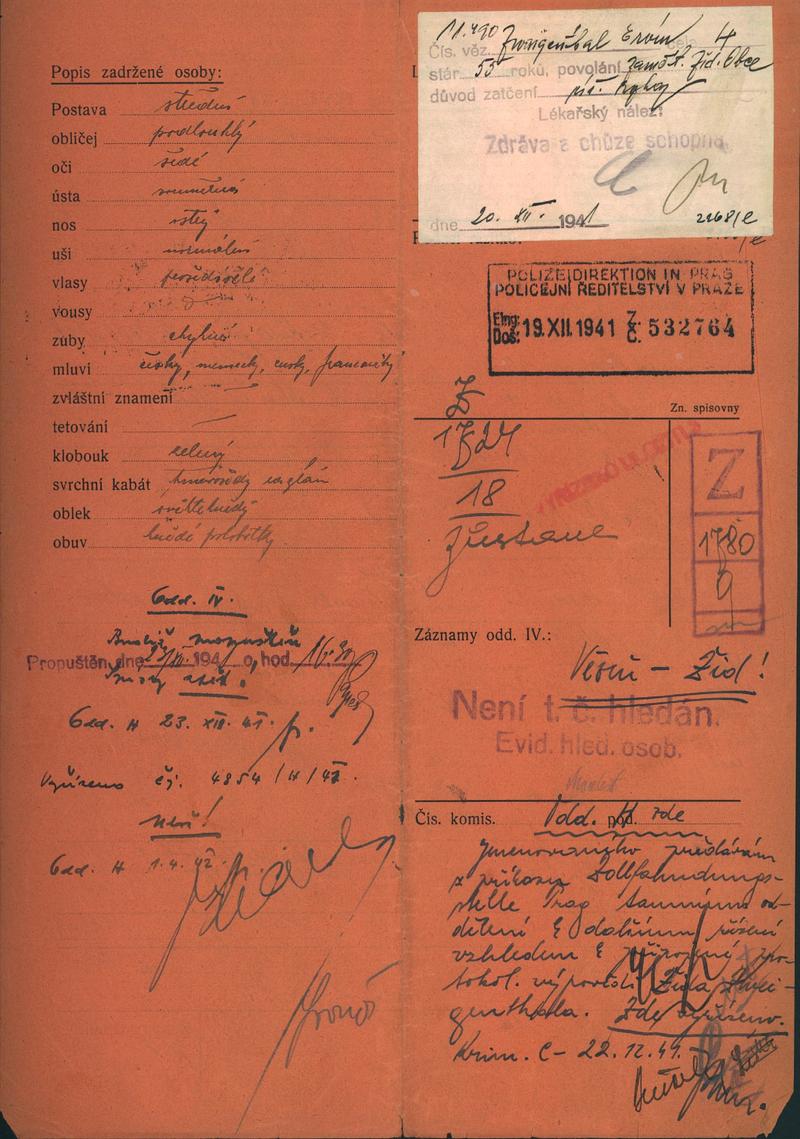 Popis zadržené osoby:
Postava střední
obličej podlouhlý
oči šedé
ústa souměrná
nos ostrý
uši normální
vlasy prošedivělé
vousy
zuby chybné
mluví česky, německy, rusky, francouzsky
zvláštní znamení
tetování
klobouk zelený
svrchní kabát tmavošedý raglán
oblek světlehnědý
obuv hnědé polobotky
Odd. IV.
Propuštěn dne 194 o hod. 16.30
Odd. H 23. XII. 41.
Vyřízeno čj. 4854 /H/ 41.
Není!
Odd. H 1.4. 42.
11.490
Čís. věz. Zweigenthal Ervín cela 4
stár 55 roků, povolání zaměst. Žid. Obce
důvod zatčení
Lékařský nález:
Zdráva a chůze schopna
dne 20. XII. 1941 2268/e
POLIZEIDIREKTION IN PRAG
POLICEJNÍ ŘEDITELSTVÍ V PRAZE
Eing. Doš. 19. XII. 1941 Z. Č. 532764
Zn. spisovny
Z
1724
18
Zůstane
Z
1780
9
Záznamy odd. IV.:
Věsni - Žid!
Není t. č. hledán.
Evid. hled. osob.
Čís. komis. Odd. H zde
Jmenovaného předávám
z příkazu Zollfahndungs-
stelle Prag tamnímu od-
dělení k dalšímu řízení
vzhledem k přiložené pro-
tokol. výpovědi Žida Zwei-
genthala. Zde vyřízeno.
Krim. C - 22.12.41.